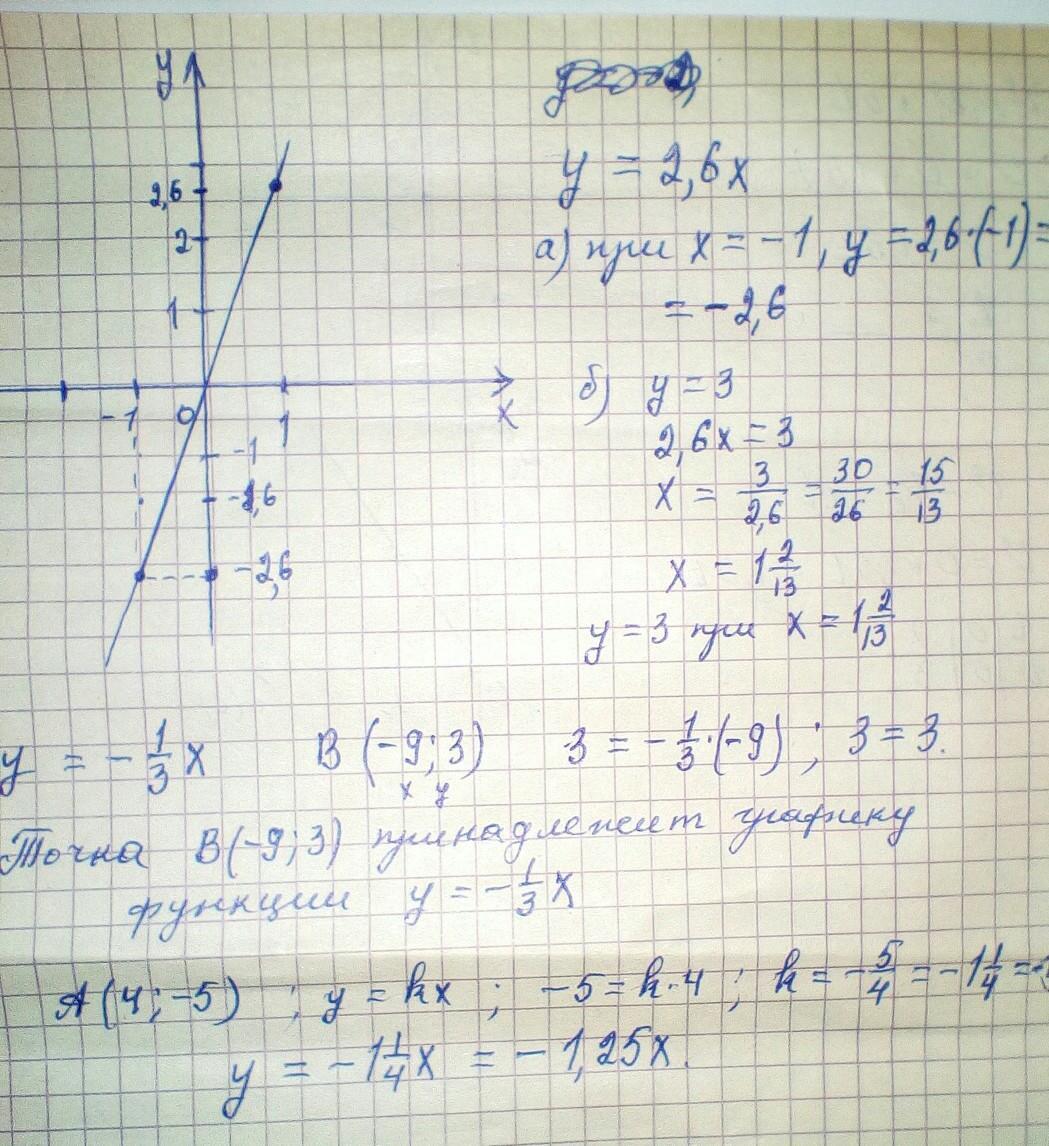 y
2,6
2
1
-1 0 1 x
-1
-1,6
-2,6
y = 2,6x
а) при x = -1, y = 2,6·(-1) =
= -2,6
б) y = 3
2,6x = 3
x = 3/2,6 = 30/26 = 15/13
x = 1 2/13
y = 3 при x = 1 2/13
y = -1/3 x B (-9; 3) 3 = -1/3·(-9) ; 3 = 3.
x y
Точка B(-9; 3) принадлежит графику
функции y = -1/3 x
A (4; -5) ; y = kx ; -5 = k·4 ; k = -5/4 = -1 1/4 =
y = -1 1/4 x = -1,25x.